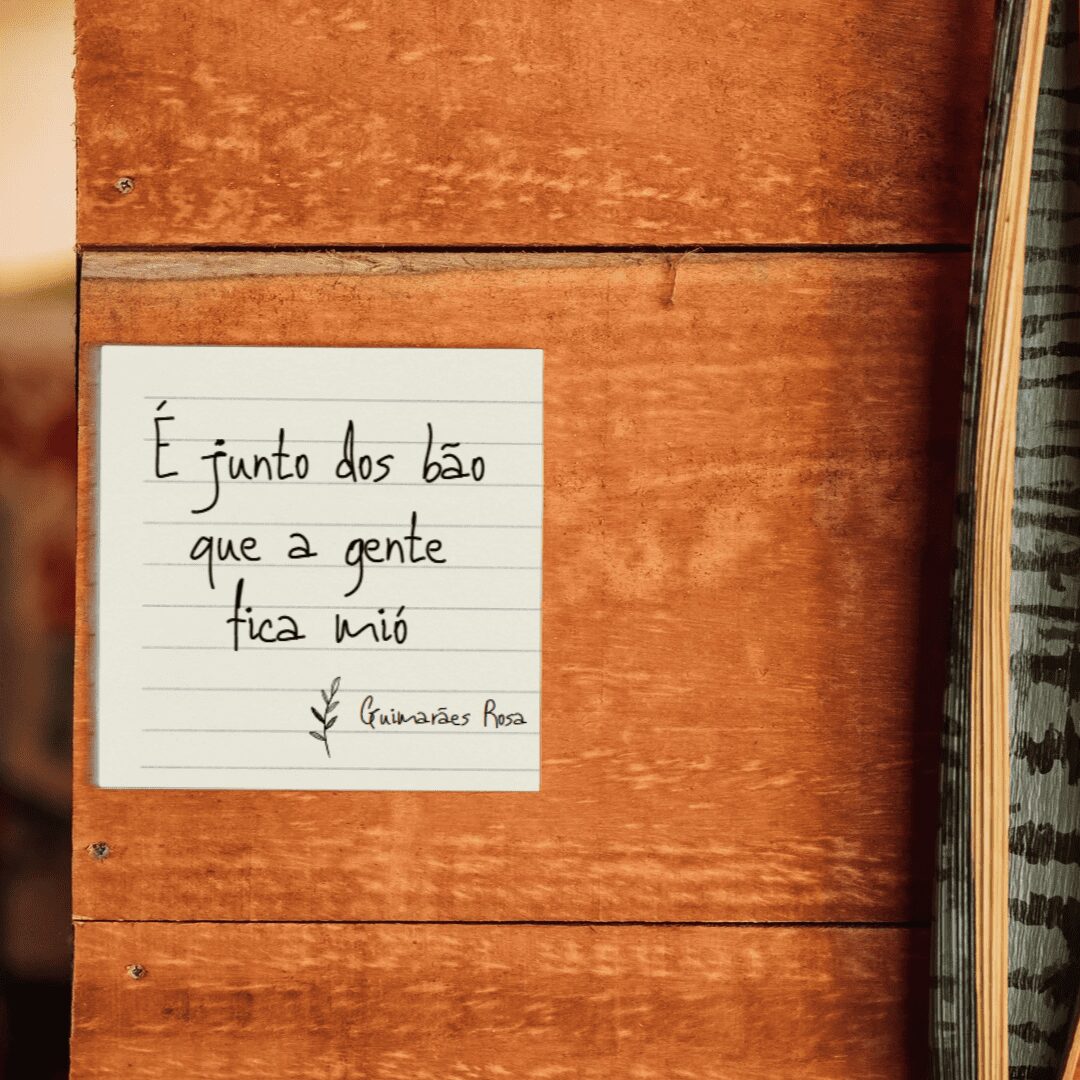 É junto dos bão
que a gente
fica mió
Guimarães Rosa